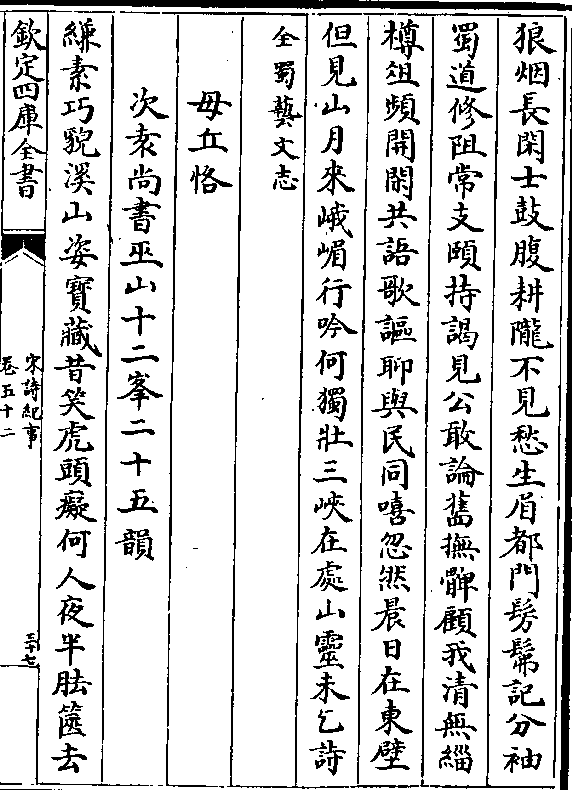 狼烟長閑士鼓腹耕隴不見愁生眉都門髣髴記分袖
蜀道修阻常支頤持謁見公敢論舊撫髀顧我清無緇
樽俎頻開閤共語歌謳聊與民同嘻忽然晨日在東壁
但見山月來峨嵋行吟何獨壯三峽在處山靈未乞詩
全蜀藝文志
毋丘恪
次袁尚書巫山十二峯二十五韻
縑素巧貌溪山姿寶藏昔笑虎頭癡何人夜半胠篋去
欽定四庫全書
宋詩紀事
卷五十二
三十七